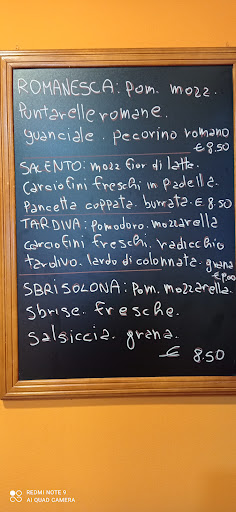 ROMANESCA: Pom. mozz.
Puntarelle romane.
guanciale. pecorino romano
€ 8.50
SALENTO: mozz fior di latte.
Carciofini freschi in padella.
Pancetta coppata. burrata. € 8.50
TARDIVA: pomodoro. mozzarella
carciofini freschi. radicchio
tardivo. lardo di colonnata. grana
€ 9,00
SBRISOLONA: Pom. mozzarella.
Sbrise. fresche.
Salsiccia. grana.
€ 8.50
REDMI NOTE 9
AI QUAD CAMERA